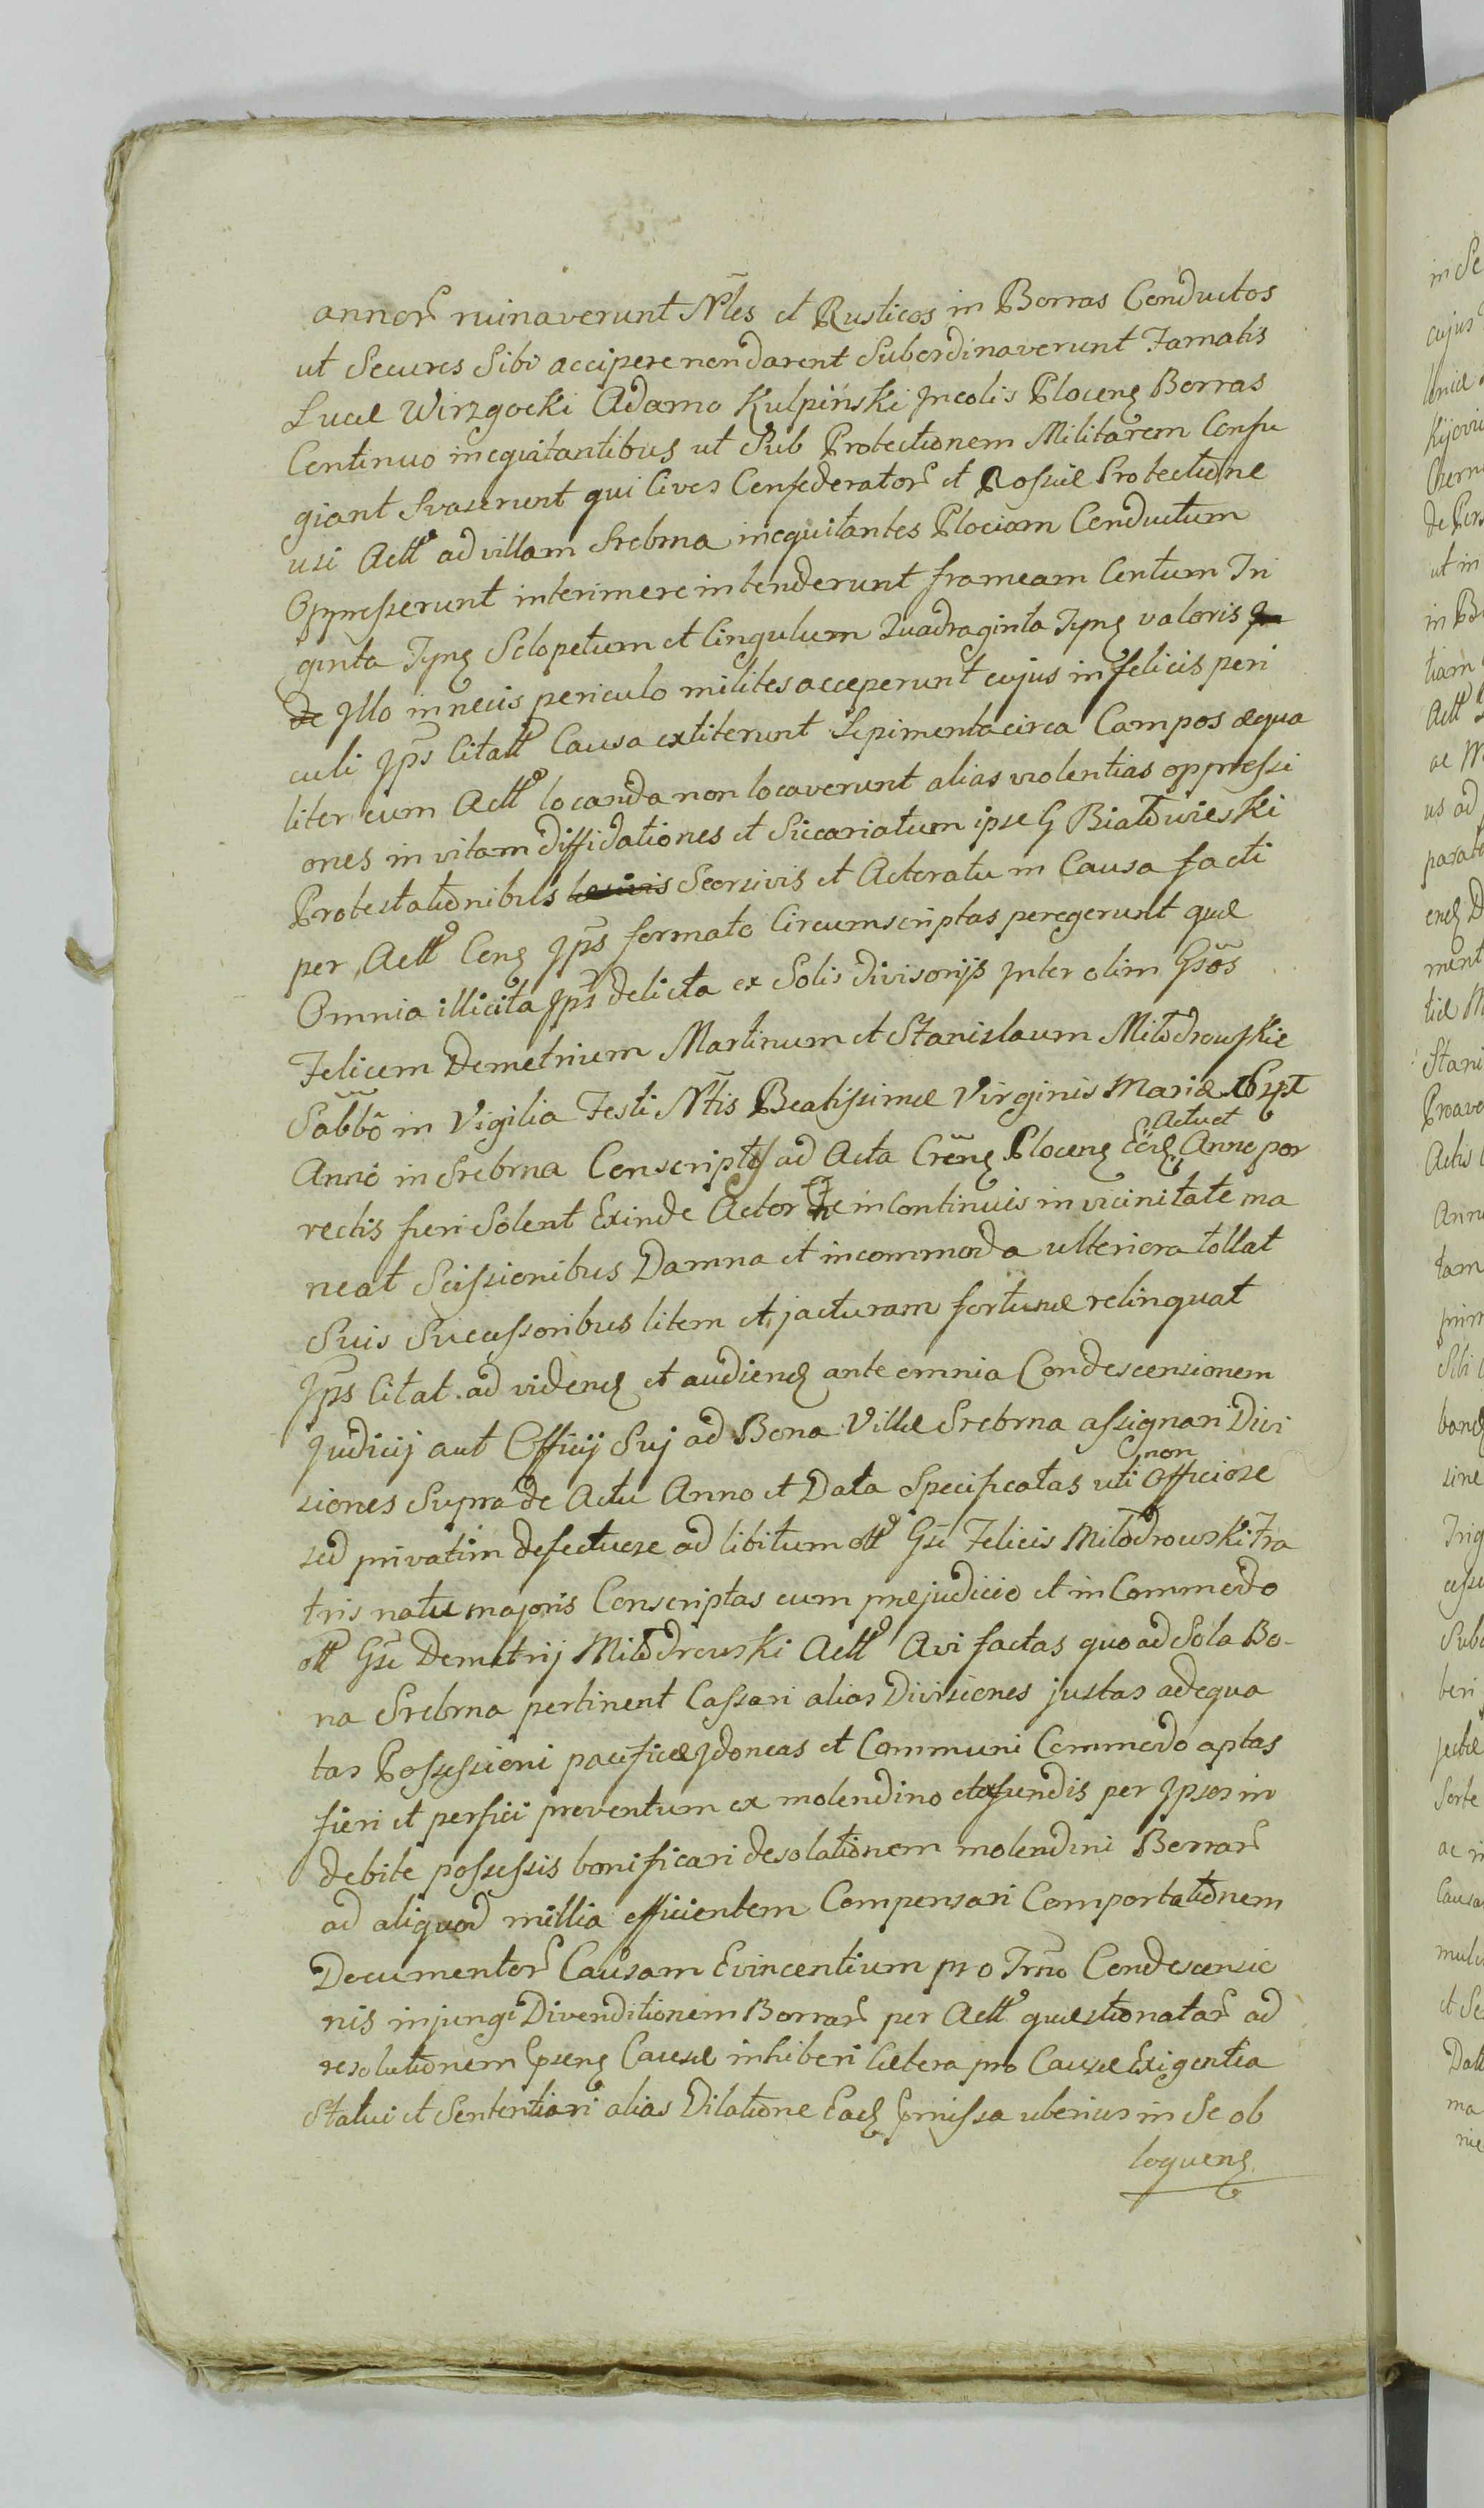 annor ruinaverunt Ntes et Rusticos in Borras Conductos
ut Secures Sibi accipere non darent Subordinaverunt Famatis
Lucæ Wirzgocki Adamo Kulpiński Jncolis Plocen Borras
Continuo inequitantibus ut Sub Protectionem Militarem Confu
giant Svaserunt qui Cives Confederator et Rossiæ Protectione
usi Actt ad villam Srebrna inequitantes Plociam Conductum
Oppresserunt interimere intenderunt frameam Centum Tri
ginta Tynf Sclopetum et Cingulum Quadraginta Tynf valoris
de Jllo in necis periculo milites acceperunt cujus infelicis peri
culi Jps Citatt Causa extiterunt Sepimenta circa Campos æqua
liter cum Actt locanda non locaverunt alias violentias oppressi
ones in vitam diffidationes et Siccariatum ipse G Białowieski
Protestationibus Seorsivis et Actoratu in Causa facti
per Actt Cens Jps formato Circumscriptas peregerunt quæ
Omnia illicita Jps delicta ex Solis divisorijs Jnter olim Gsos
Felicem Demetrium Martinum et Stanislaum Miłodrowskie
Sabbo in Vigilia Festi Ntis Beatissimæ Virginis Mariæ
Anno in Srebrna Conscriptis ad Acta Crens Plocen Eod Actu et Anno por
rectis fieri Solent Exinde Actor Ne in Continuis in vicinitate ma
neat Scissionibus Damna et incommoda ulteriora tollat
Suis Sucessoribus litem et jacturam fortunæ relinquat
Jps Citat. ad videnđ et audienđ ante omnia Condescensionem
Judicij aut Officij Suj ad Bona Villæ Srebrna assignari Divi
siones Supra de Actu Anno et Data Specificatas uti non Officiose
sed privatim defectuose ad libitum ott Gsi Felicis Miłodrowski Fra
tris natu majoris Conscriptas cum præjudicio et inCommodo
ott Gsi Demetrij Miłodrowski Actt Avi factas quo ad Sola Bo-
na Srebrna pertinent Cassari alias Divisiones justas adequa
tas Possessioni pacificæ Jdoneas et Communi Commodo aptas
fieri et perfici proventum ex molendino et ex fundis per Jpsos in
debite possessis bonificari desolationem molendini Borrar
ad aliquod millia efficientem Compensari Comportationem
Documentor Causam Evincentium pro Trno Condescensio
nis injungi Divenditionem Borrar per Actt quæstionatar ad
resolutionem Cpsens Causæ inhiberi Cætera pro Causæ Exigentia
Statui et Sententiari alias Dilatione Eađ Cpmissa uberius in Se ob
loquens